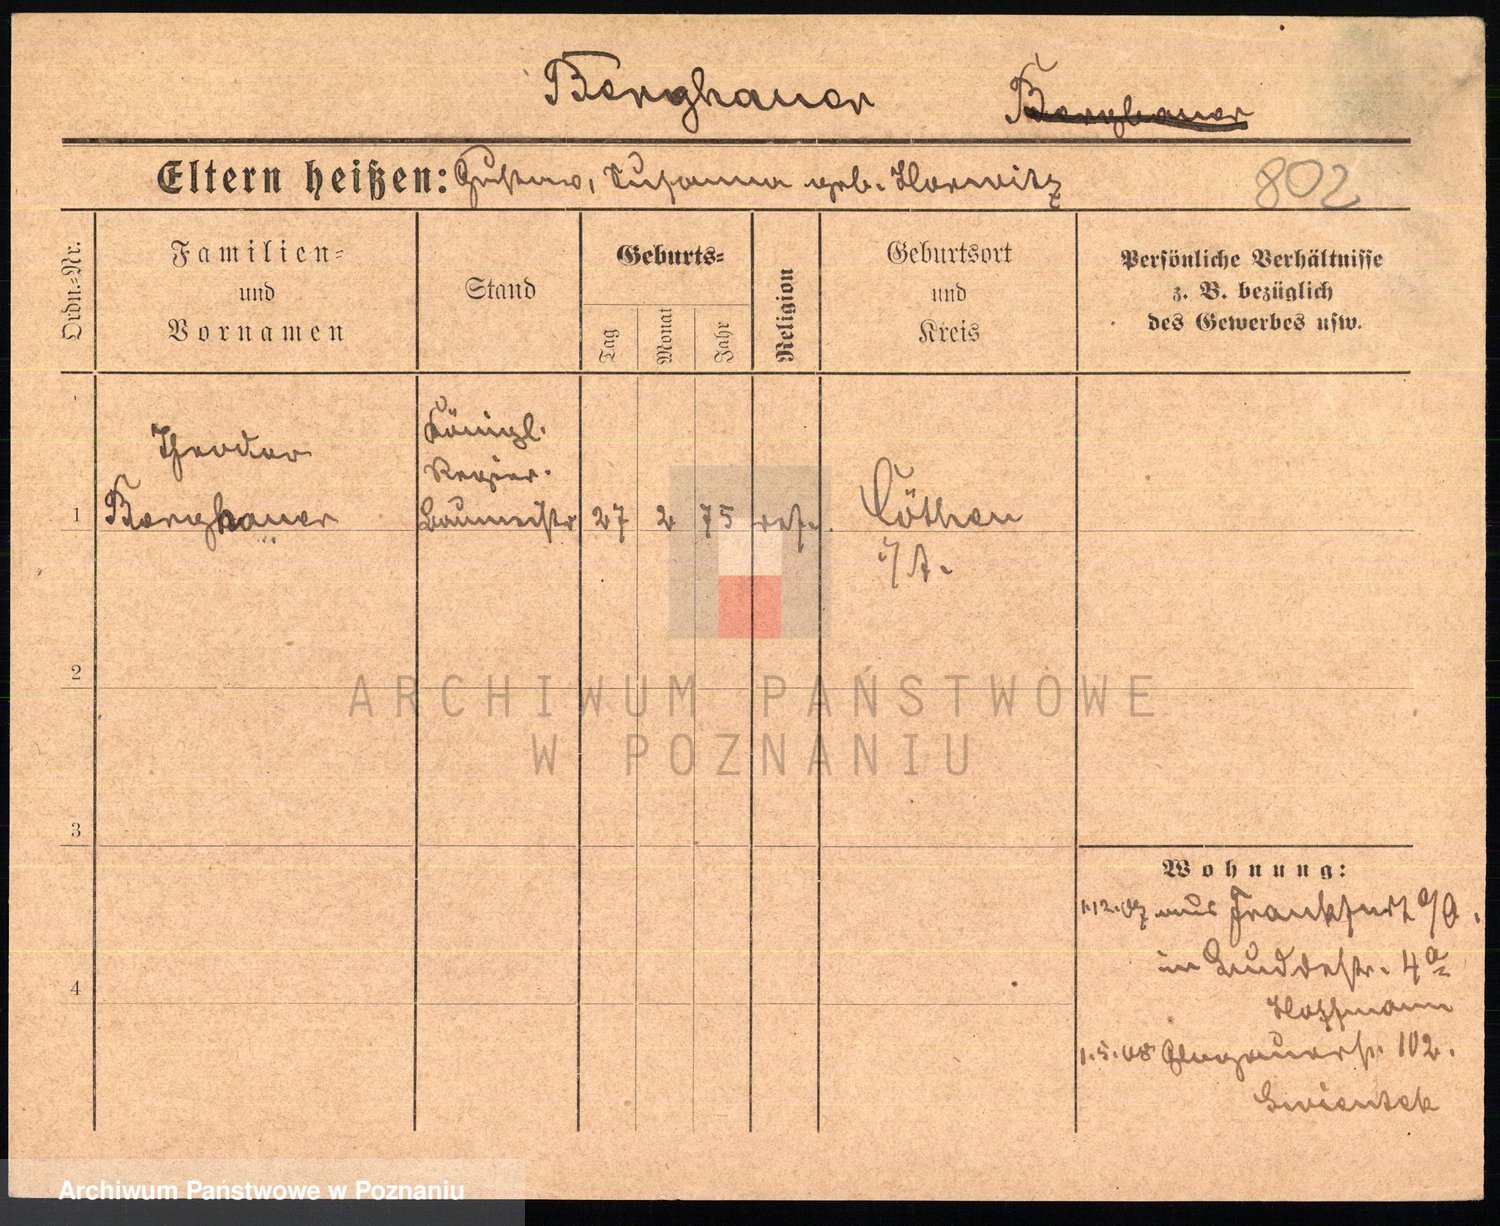 Berghauer Berghauer
Eltern heißen: Gustav, Susanna geb. Horwitz
802
Ordn.-Nr.
Familien-
und
Vornamen
Stand
Geburts-
Tag
Monat
Jahr
Religion
Geburtsort
und
Kreis
Persönliche Verhältnisse
z. B. bezüglich
des Gewerbes usw.
Theodor
Königl.
Regier.
1 Berghauer Baumeistr 27 2 75 ref. Cöthen
i/A.
2
ARCHIWUM PAŃSTWOWE
W POZNANIU
3
Wohnung:
1.12.07 aus Frankfurt a/O.
in Buddestr. 4a
Hoffmann
4
1.5.08 Glogauerstr. 102.
Gwientek
Archiwum Państwowe w Poznaniu